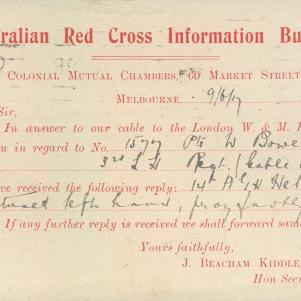 ralian Red Cross Information Bu
Colonial Mutual Chambers, 60 Market Street
Melbourne, 9/5/17
Sir,
In answer to our cable to the London W. & M. 
u in regard to No. 1577 Pte W Bowe
3rd L H Regt.
ve received the following reply: 14th A G H Hel
left hand,
If any further reply is received we shall forward sa
Yours faithfully,
J. Beacham Kiddle,
Hon Sec